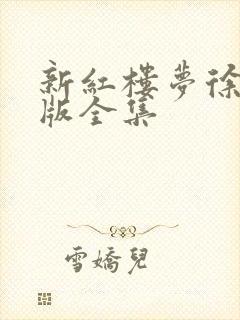 新紅樓夢徐
版全集
雪嬌兒